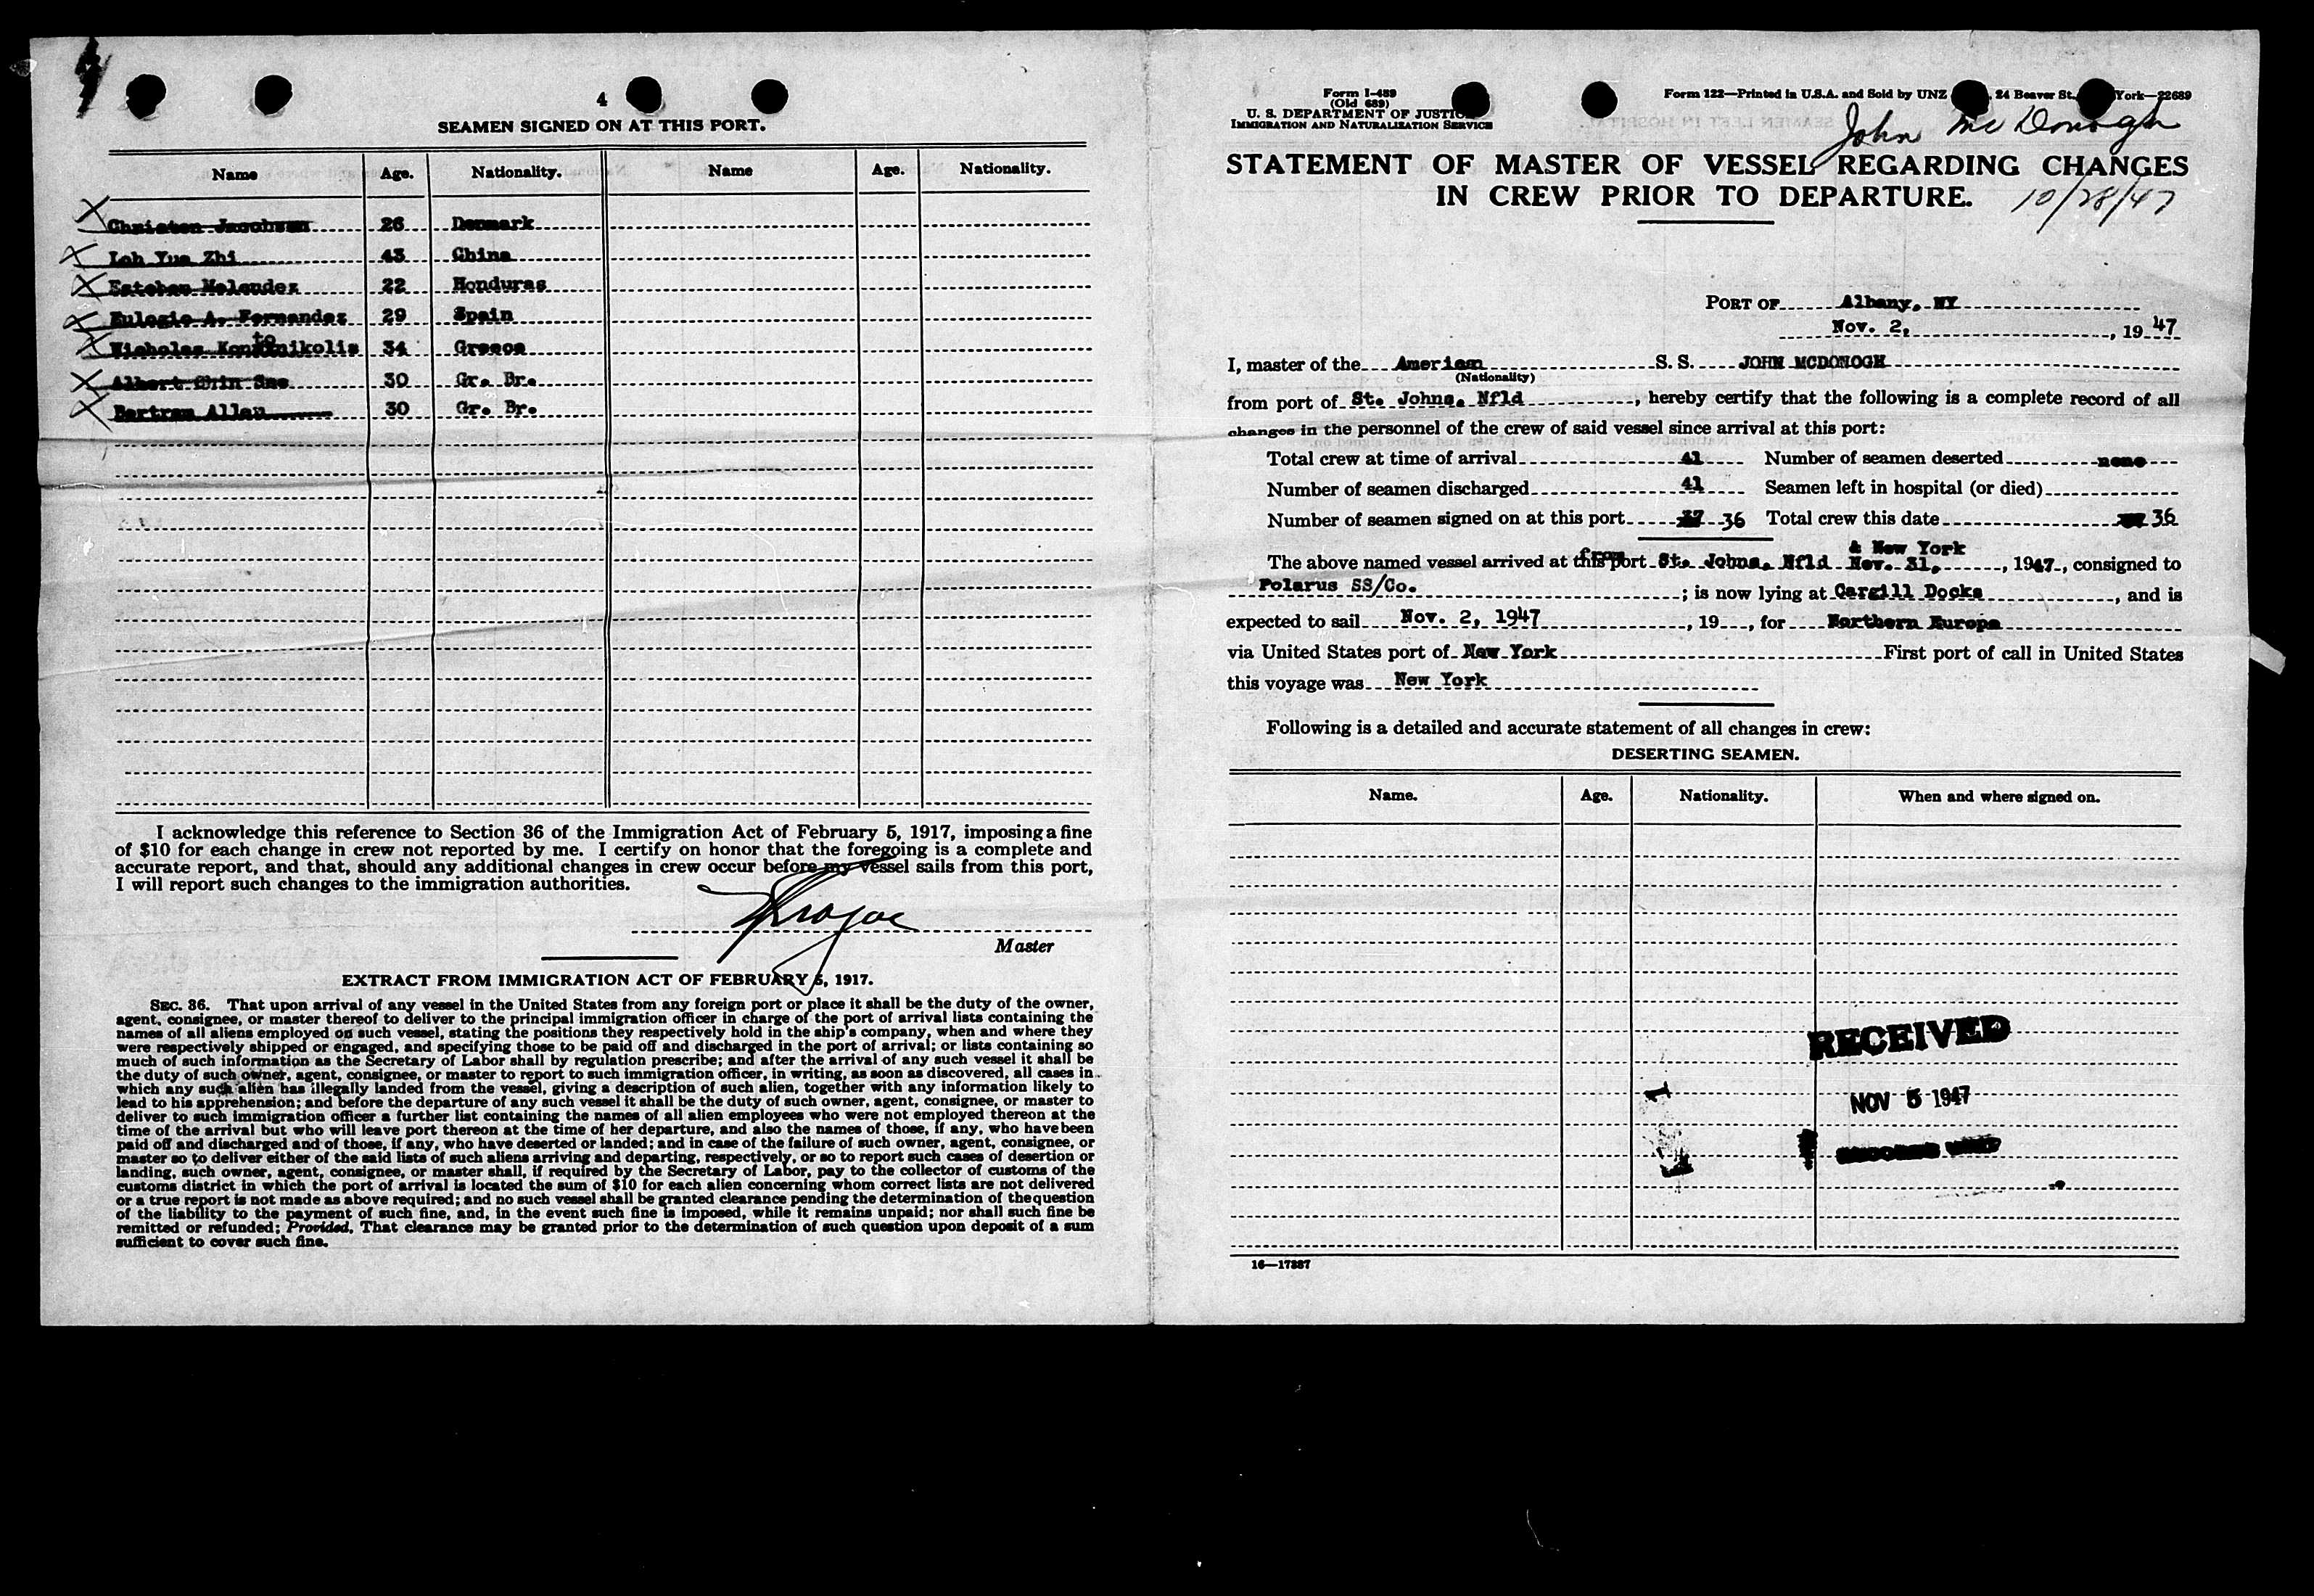 4
SEAMEN SIGNED ON AT THIS PORT.
Name Age. Nationality. Name Age. Nationality.
Christen Jacobsen 26 Denmark
Loh Yue Zhi 43 China
Esteban Melendez 22 Honduras
Eulogio A. Fernandez 29 Spain
Nicholas 34 Greece
Albert Chin Sue 30 Gr. Br.
Bertram Allen 30 Gr. Br.
I acknowledge this reference to Section 36 of the Immigration Act of February 5, 1917, imposing a fine
of $10 for each change in crew not reported by me. I certify on honor that the foregoing is a complete and
accurate report, and that, should any additional changes in crew occur before my vessel sails from this port,
I will report such changes to the immigration authorities.
Master
EXTRACT FROM IMMIGRATION ACT OF FEBRUARY 5, 1917.
SEC. 36. That upon arrival of any vessel in the United States from any foreign port or place it shall be the duty of the owner,
agent, consignee, or master thereof to deliver to the principal immigration officer in charge of the port of arrival lists containing the
names of all aliens employed on such vessel, stating the positions they respectively hold in the ship's company, when and where they
were respectively shipped or engaged, and specifying those to be paid off and discharged in the port of arrival; or lists containing so
much of such information as the Secretary of Labor shall by regulation prescribe; and after the arrival of any such vessel it shall be
the duty of such owner, agent, consignee, or master to report to such immigration officer, in writing, as soon as discovered, all cases in
which any such alien has illegally landed from the vessel, giving a description of such alien, together with any information likely to
lead to his apprehension; and before the departure of any such vessel it shall be the duty of such owner, agent, consignee, or master to
deliver to such immigration officer a further list containing the names of all alien employees who were not employed thereon at the
time of the arrival but who will leave port thereon at the time of her departure, and also the names of those, if any, who have been
paid off and discharged and of those, if any, who have deserted or landed; and in case of the failure of such owner, agent, consignee, or
master so to deliver either of the said lists of such aliens arriving and departing, respectively, or so to report such cases of desertion or
landing, such owner, agent, consignee, or master shall, if required by the Secretary of Labor, pay to the collector of customs of the
customs district in which the port of arrival is located the sum of $10 for each alien concerning whom correct lists are not delivered
or a true report is not made as above required; and no such vessel shall be granted clearance pending the determination of the question
of the liability to the payment of such fine, and, in the event such fine is imposed, while it remains unpaid; nor shall such fine be
remitted or refunded; Provided, That clearance may be granted prior to the determination of such question upon deposit of a sum
sufficient to cover such fine.
Form I-489
(Old 689)
U. S. DEPARTMENT OF JUSTICE
IMMIGRATION AND NATURALIZATION SERVICE
Form 122—Printed in U.S.A. and Sold by UNZ 24 Beaver St. York—22689
John McDonogh
STATEMENT OF MASTER OF VESSEL REGARDING CHANGES
IN CREW PRIOR TO DEPARTURE.
10/28/47
PORT OF Albany, NY
Nov. 2, , 19 47
I, master of the American S. S. JOHN MCDONOGH
(Nationality)
from port of St. Johns, Nfld , hereby certify that the following is a complete record of all
changes in the personnel of the crew of said vessel since arrival at this port:
Total crew at time of arrival 41 Number of seamen deserted none
Number of seamen discharged 41 Seamen left in hospital (or died)
Number of seamen signed on at this port 37 36 Total crew this date 36
from & New York
The above named vessel arrived at this port St. Johns, Nfld Nov. 31, , 1947 , consigned to
Polarus SS/Co. ; is now lying at Cargill Docks , and is
expected to sail Nov. 2, 1947 , 19 , for Northern Europe
via United States port of New York First port of call in United States
this voyage was New York
Following is a detailed and accurate statement of all changes in crew:
DESERTING SEAMEN.
Name. Age. Nationality. When and where signed on.
RECEIVED
NOV 5 1947
16—17337